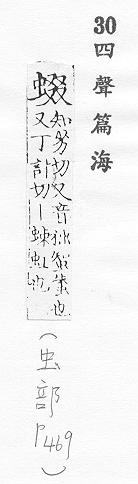 30四聲篇海
蝃
知劣切又音也
又丁計切丨蝀虹也
（虫部P469）